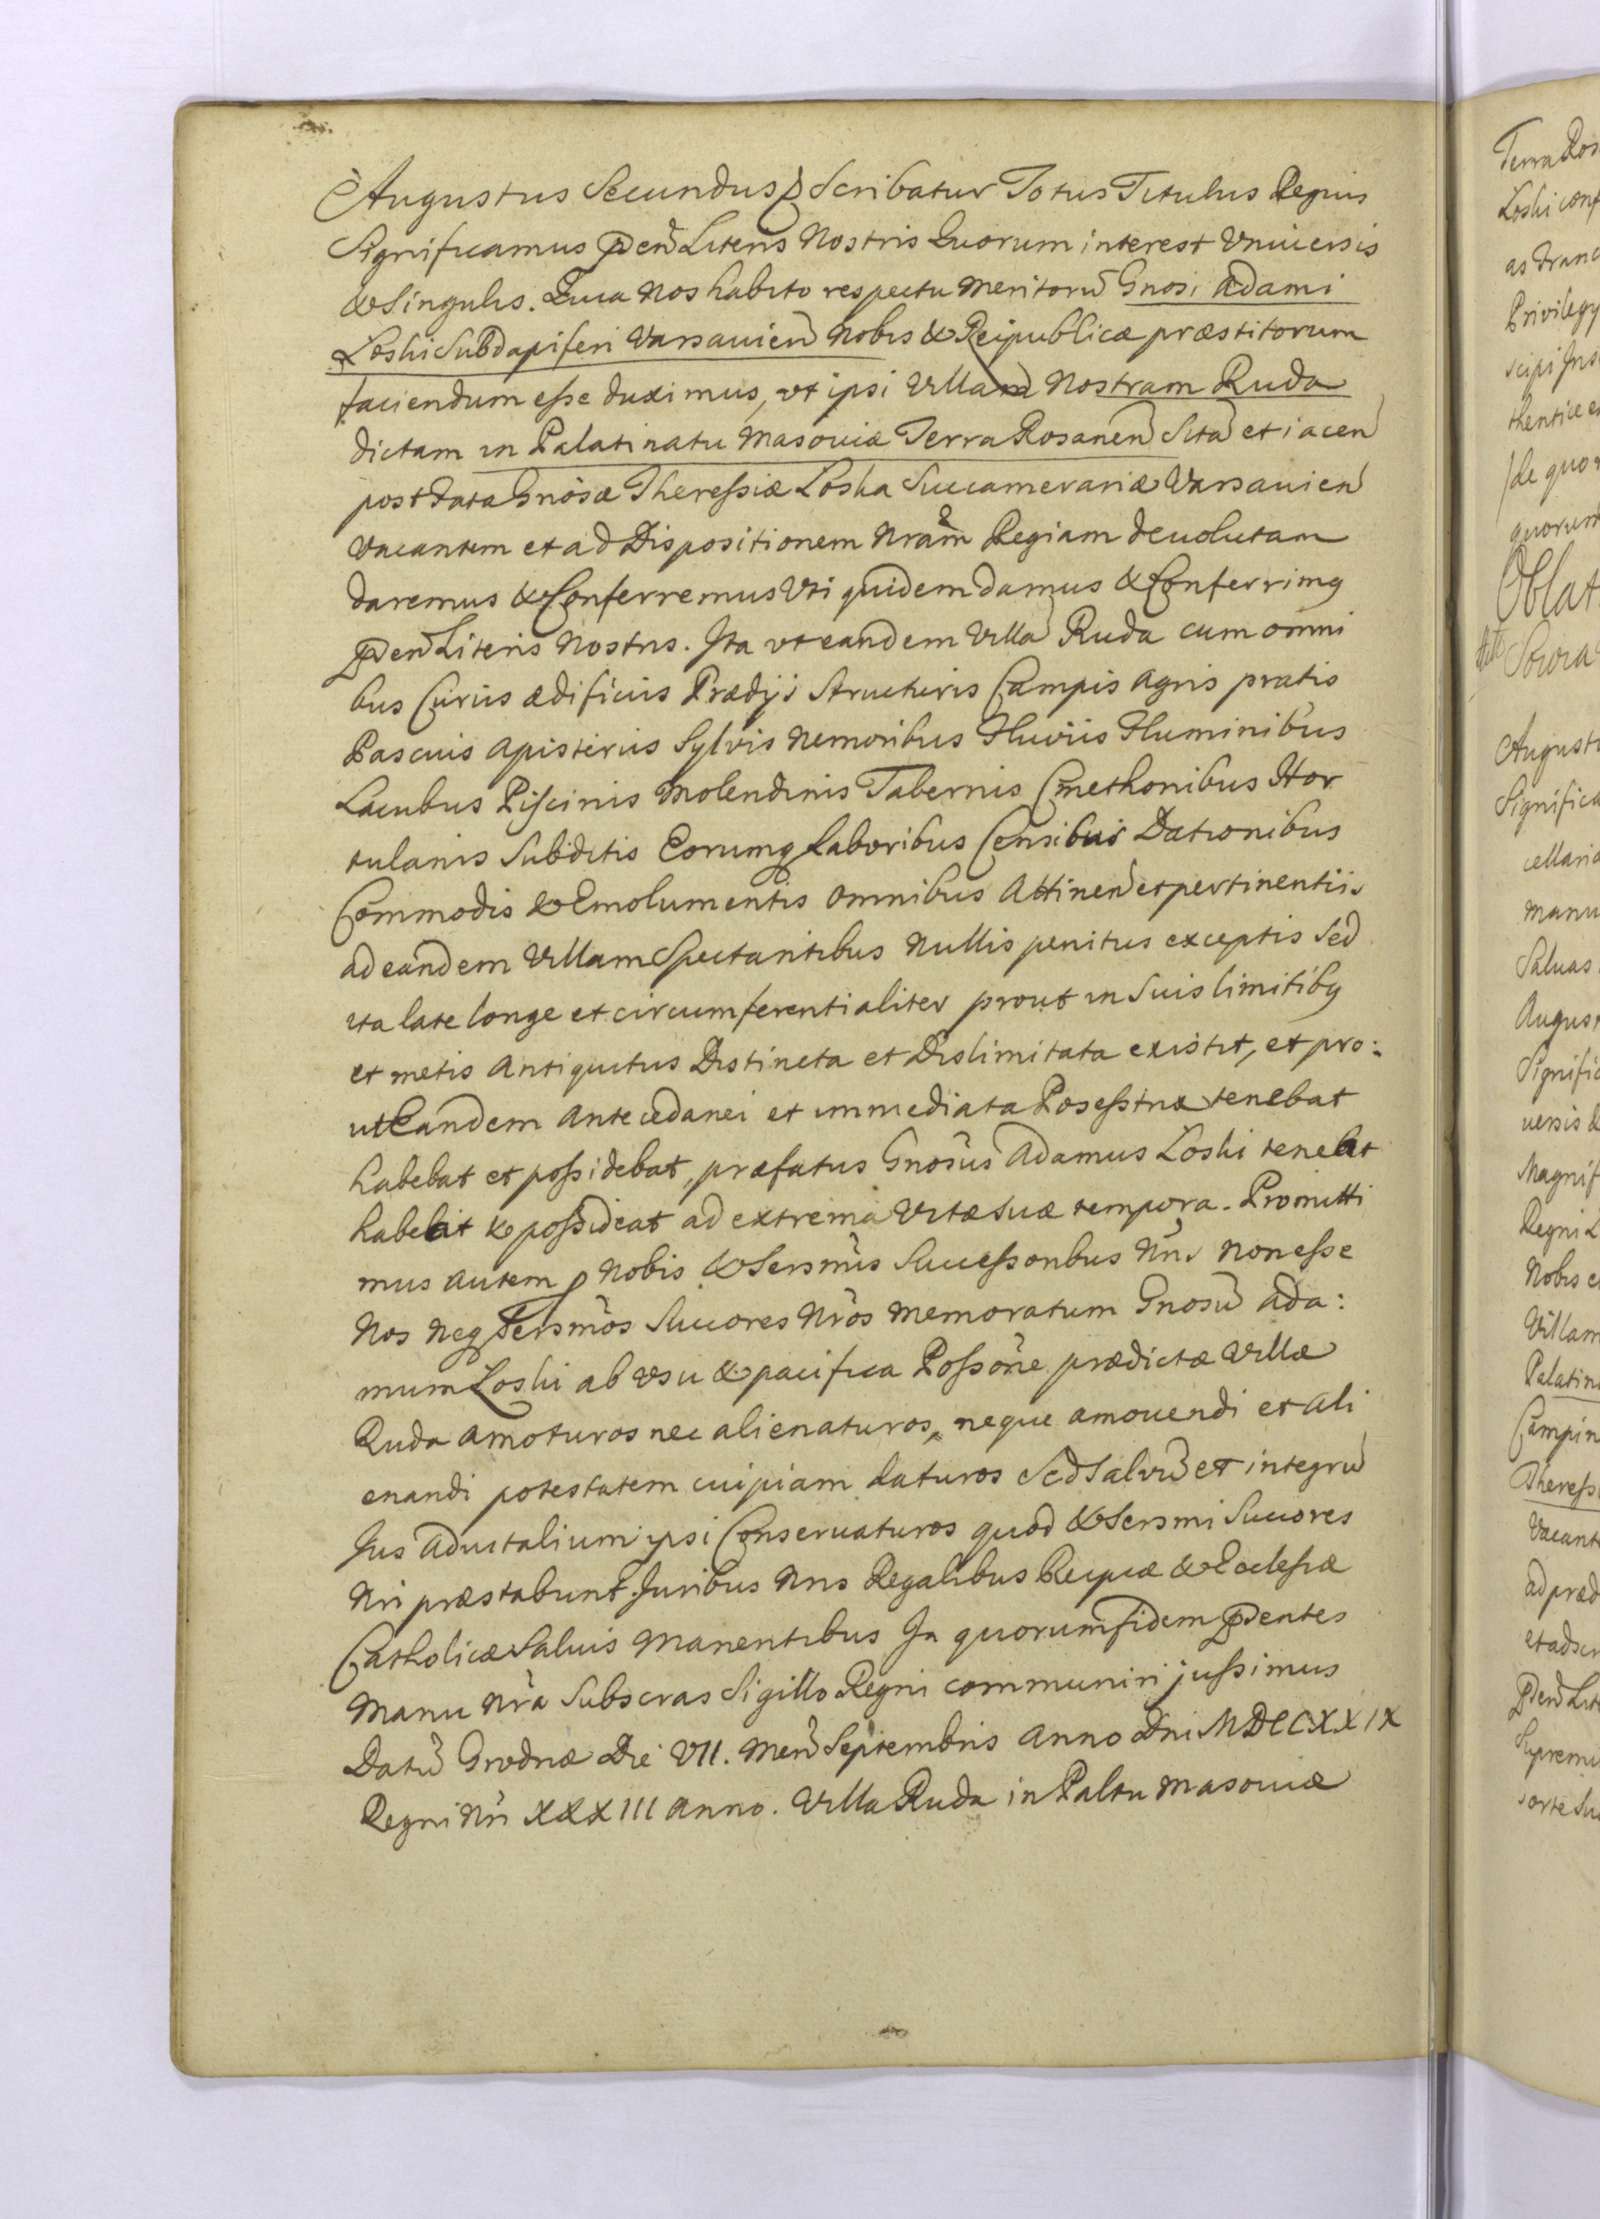 Augustus Secundus Scribatur Totus Titulus Regius
Significamus Pñden Literis Nostris Quorum interest Vniuersis
& Singulis. Quia Nos habito respectu Meritorũ Gnosi Adami
Loski Subdapiferi Varsauien Nobis & Reipublicæ præstitorum
faciendum esse duximus, vt ipsi Villam Nostram Ruda
dictam in Palatinatu Masouiæ Terra Rosanen Sitã et iacen
post data Gnosæ Theressiæ Loska Succamerariæ Varsauien
Vacantem et ad Dispositionem Nram Regiam deuolutam
daremus & Conferremus Vti quidem damus & Conferrimq
Pñden Literis Nostris. Ita vt eandem Villã Ruda cum omni
bus Curiis ædificiis Prædijs Structuris Campis Agris pratis
Pascuis Apisteriis Sylvis Nemoribus Fluviis Fluminibus
Lacubus Piscinis Molendinis Tabernis Cmethonibus Hor
tulanis Subditis Eorumq Laboribus Censibus Dationibus
Commodis & Emolumentis omnibus Attinen et pertinentiis
ad eandem Villam Spectantibus Nullis penitus exceptis Sed
ita late longe et circumferentialiter prout in Suis limitibq
et metis Antiquitus Distincta et Dislimitata existit, et pro:
ut Eandem Antecedanei et immediata Posestrix tenebat
habebat et possidebat, præfatus Gnosus Adamus Loski teneat
habeat & possideat ad extrema Vitæ Suæ tempora. Promitti
mus autem p Nobis & Sersmis Successoribus Nris Non esse
Nos Neq Sersmos Succores Nros Memoratum Gnosũ Ada:
mum Loski ab Vsu & pacifica Possone prædictæ Villæ
Ruda Amoturos nec alienaturos, neque amouendi et Ali
enandi potestatem cuipiam daturos Sed Salvũ et integrũ
Jus Aduitalium ipsi Conseruaturos quod & Sersmi Succores
Nri præstabunt. Juribus Nris Regalibus Reipcæ & Ecclesiæ
Catholicæ Saluis Manentibus In quorum fidem Pñdentes
Manu Nra Subscras Sigillo Regni communiri jussimus
Datũ Grodnæ Die VII. Men Septembris Anno Dni MDCCXXIX
Regni Nri XXXIII Anno. Villa Ruda in Paltu Masouiæ
Terra Ros
Loski conf
Privilegy
thentice
quorum
Oblat
Augustu
Significa
cellaria
manu
Saluas
August
Signific
uersis &
Magnif
Regni
Nobis e
Villam
Palatin
Campin
Theress
Vacant
ad præd
Supremi